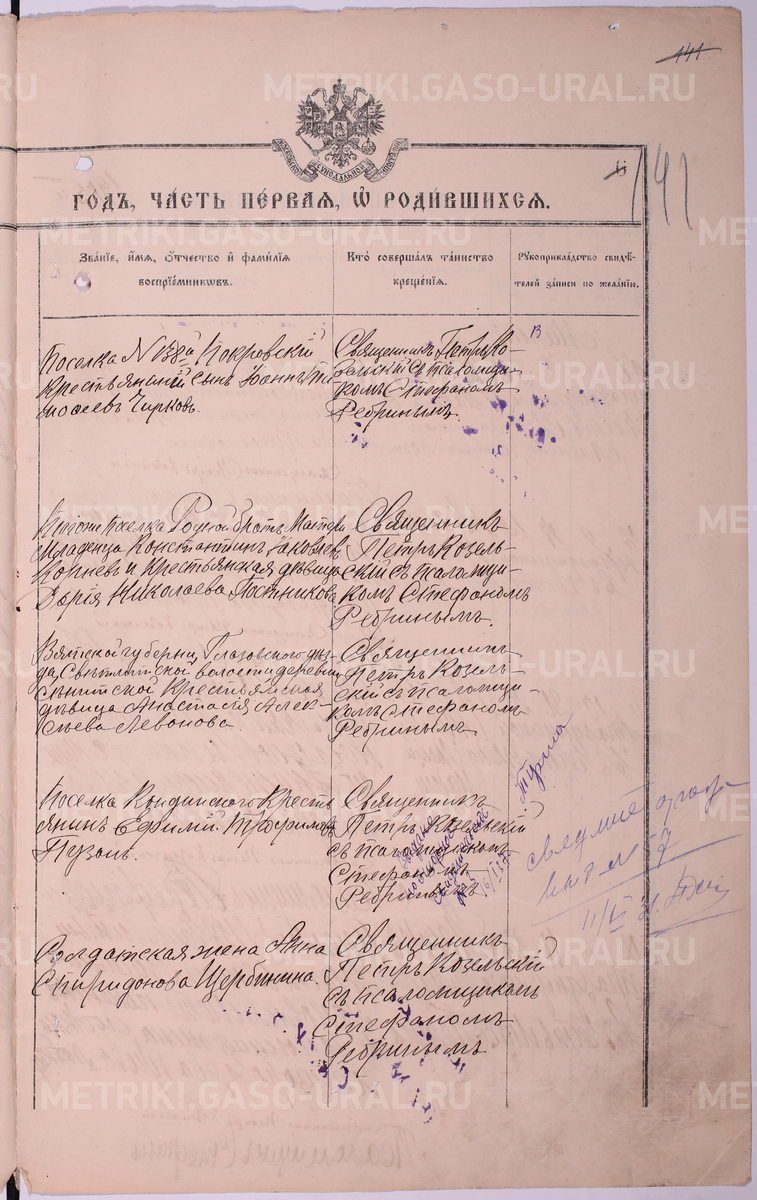 141
METRIKI.GASO-URAL.RU
141
ГОДЪ, ЧАСТЬ ПЕРВАЯ, Ѡ РОДИВШИХСЯ.
Званіе, имя, отчество и фамилія воспріемниковъ.
Кто совершалъ таинство крещенія.
Рукоприкладство свидѣтелей записи по желанію.
Поселка N 138й Покровскій
крестьянскій сынъ Іоаннъ Ти
моѳеевъ Чирковъ.
Священникъ Петръ Ко-
зельскій съ псаломщи-
комъ Стефаномъ
Ребринымъ.
поселка Родной братъ Матери
Младенца Константинъ Іаковлевъ
Корневъ и крестьянская дѣвица
Дарія Николаева Постникова
Священникъ
Петръ Козель-
скій съ псаломщи-
комъ Стефаномъ
Ребринымъ.
Вятской губерніи, Глазовского уѣз
да, волости деревни
крестьянская
дѣвица Анастасія Алек-
сѣева Левонова.
Священникъ
Петръ Козель-
скій съ псаломщи-
комъ Стефаномъ
Ребринымъ
Поселка Кондинского Кресть
янинъ Ефимій Трофимовъ
Священникъ
Петръ Козельскій
съ псаломщикомъ
Стефаномъ
Ребринымъ
Солдатская жена Анна
Спиридонова Щербинина.
Священникъ
Петръ Козельскій
съ псаломщикомъ
Стефаномъ
Ребринымъ
METRIKI.GASO-URAL.RU